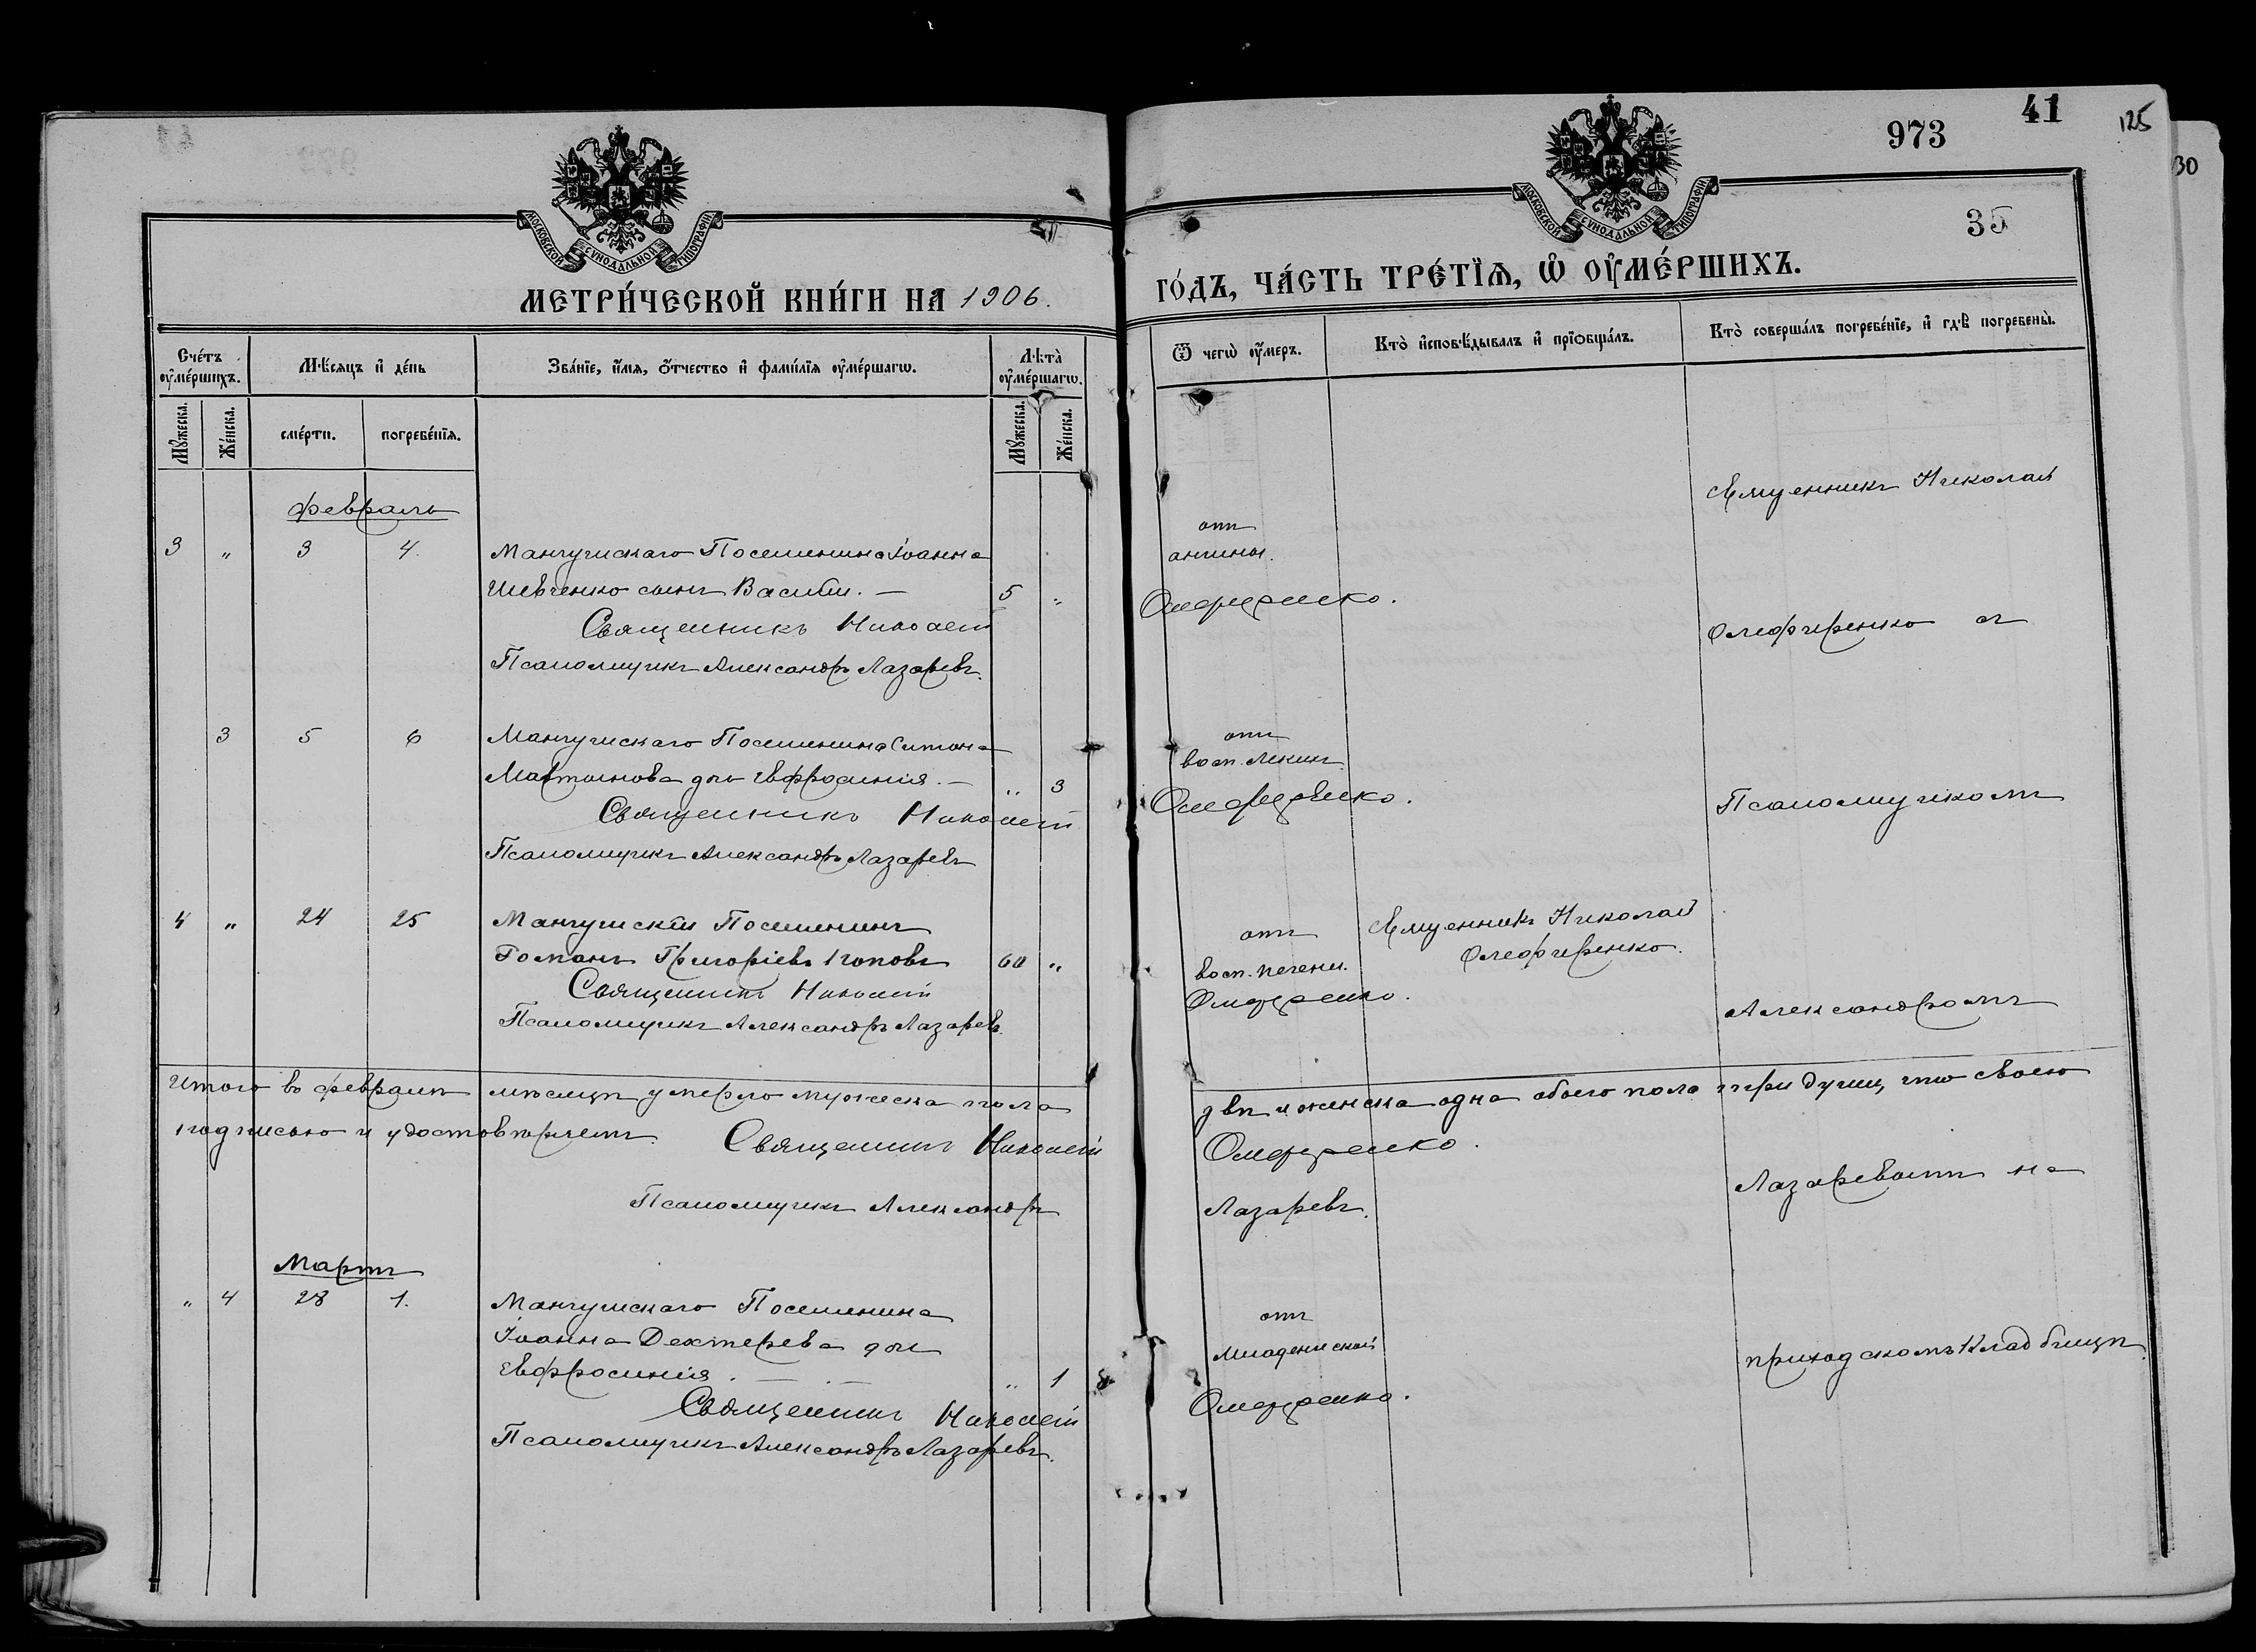 973
41
125
30
35
МОСКОВСКОЙ СѴНОДАЛЬНОЙ ТИПОГРАФІИ
МОСКОВСКОЙ СѴНОДАЛЬНОЙ ТИПОГРАФІИ
МЕТРИ́ЧЕСКОЙ КНИ́ГИ НА 1906.
ГО́ДЪ, ЧА́СТЬ ТРЕ́ТЇѦ, Ѡ҆ ОУ҆МЕ́РШИХЪ.
Сче́тъ оу҆ме́ршихъ.
Мѣ́сяцъ и҆ де́нь
Зва́нїе, и҆́мя, о҆́тчество и҆ фами́лїя оу҆ме́ршагѡ.
Лѣта̀ оу҆ме́ршагѡ.
Ѿ чегѡ̀ оу҆́меръ.
Кто̀ и҆сповѣ́дывалъ и҆ прїѡбща́лъ.
Кто̀ соверша́лъ погребе́нїе, и҆ гдѣ̀ погребены̀.
Мꙋ́жеска.
Же́нска.
сме́рти.
погребе́нїя.
Мꙋ́жеска.
Же́нска.
Февраль
3 „ 3 4. Мангушскаго Поселянина Іоанна
Шевченко сынъ Василій. — 5 „
отъ
ангины.
Священникъ Николай Олефиренко.
Псаломщикъ Александръ Лазаревъ.
3 5 6 Мангушскаго Поселянина Симона
дочь Евфросинія. — „ 3
отъ
восп. легкихъ
Священникъ Николай Олефиренко.
Псаломщикъ Александръ Лазаревъ
4 „ 24 25 Мангушскій Поселянинъ
Романъ Григоріевъ Поповъ 60 „
отъ
восп. печени.
Священникъ Николай
Олефиренко.
Священникъ Николай Олефиренко.
Псаломщикъ Александръ Лазаревъ.
Итого въ февралѣ мѣсяцѣ умерло мужеска пола двѣ и женска одна обоего пола три души, что своею
подписью и удостовѣряемъ Священникъ Николай Олефиренко.
Псаломщикъ Александръ Лазаревъ.
Мартъ
„ 4 28 1. Мангушскаго Поселянина
Іоанна Дехтерева дочь
Евфросинія. — . — „ 1
отъ
младенческой
Священникъ Николай Олефиренко.
Псаломщикъ Александръ Лазаревъ.
Священникъ Николай
Олефиренко съ
Псаломщикомъ
Александромъ
Лазаревымъ на
приходскомъ кладбищѣ.